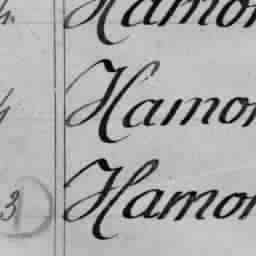 Hamon
Hamon
3 Hamon